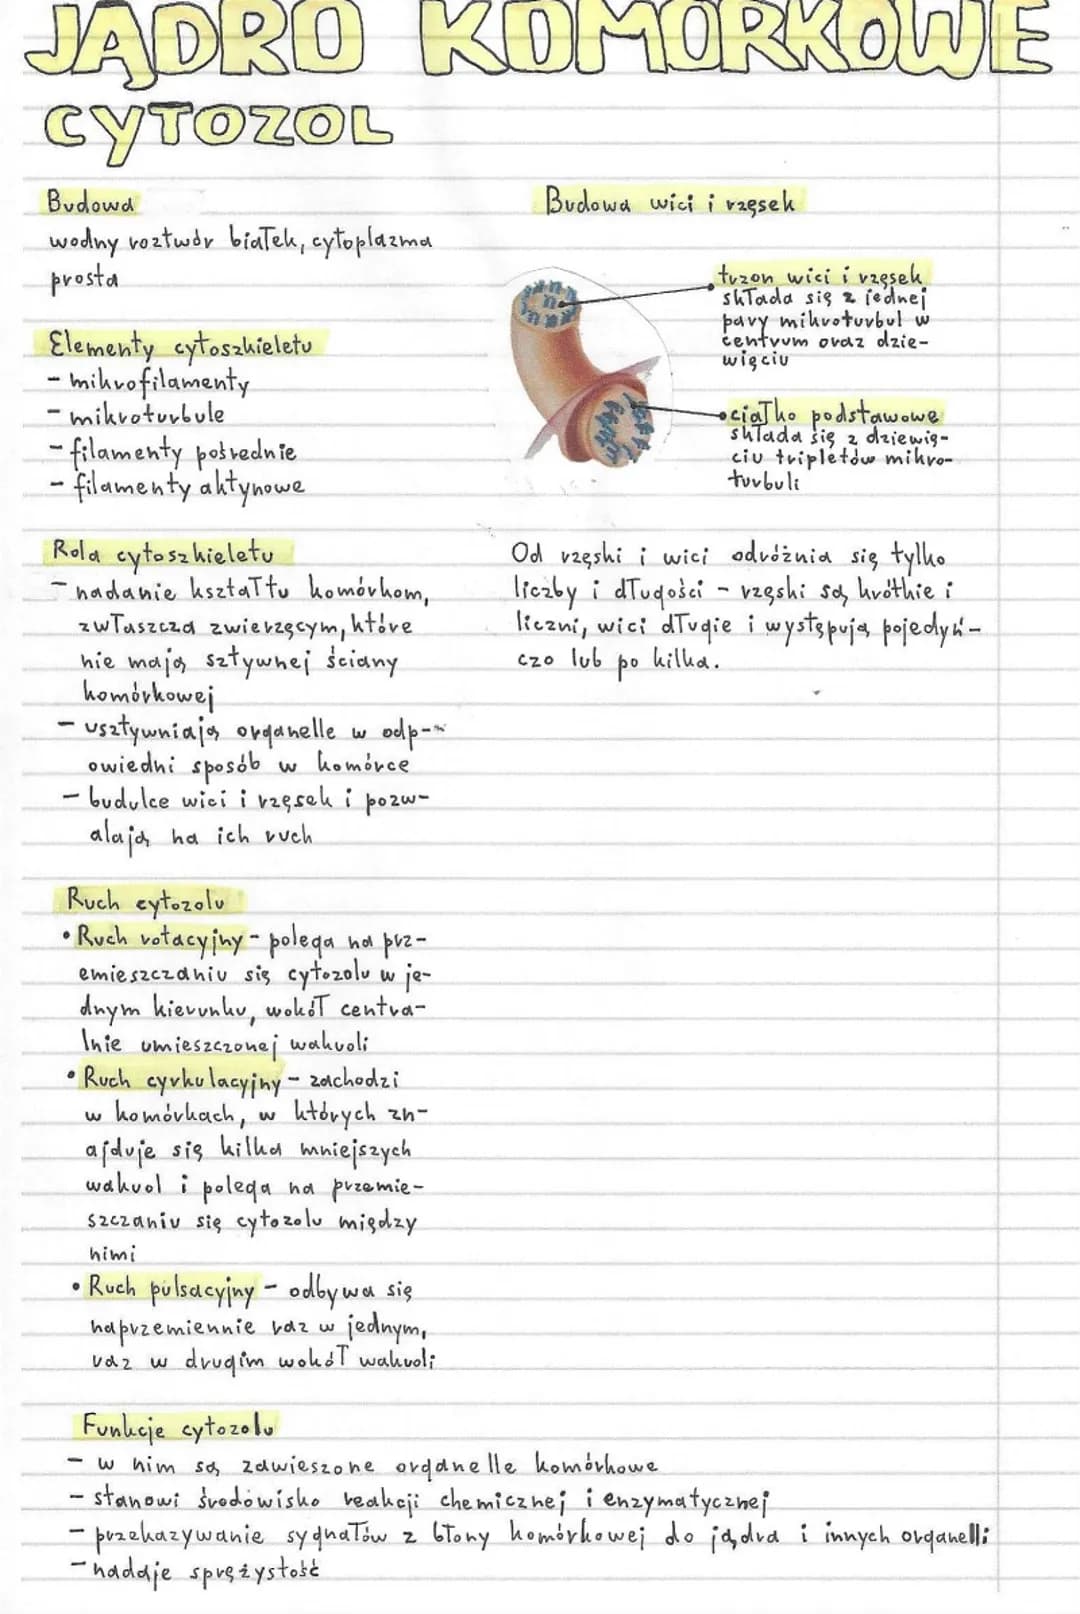 JĄDRO KOMÓRKOWE
CYTOZOL
Budowa
wodny roztwór białek, cytoplazma
prosta
Elementy cytoszkieletu
- mikrofilamenty
- mikroturbule
- filamenty pośrednie
- filamenty aktynowe
Rola cytoszkieletu
- nadanie kształtu komórkom,
zwłaszcza zwierzęcym, które
nie mają sztywnej ściany
komórkowej
- usztywniają organelle w odp-
owiedni sposób w komórce
- budulce wici i rzęsek i pozw-
alają na ich ruch
Ruch cytozolu
• Ruch rotacyjny - polega na prz-
emieszczaniu się cytozolu w je-
dnym kierunku, wokół centra-
lnie umieszczonej wakuoli
• Ruch cyrkulacyjny - zachodzi
w komórkach, w których zn-
ajduje się kilka mniejszych
wakuol i polega na przemie-
szczaniu się cytozolu między
nimi
• Ruch pulsacyjny - odbywa się
naprzemiennie raz w jednym,
raz w drugim wokół wakuoli
Budowa wici i rzęsek
trzon wici i rzęsek
składa się z jednej
pary mikroturbul w
centrum oraz dzie-
więciu
• ciałko podstawowe
składa się z dziewię-
ciu tripletów mikro-
turbuli
Od rzęski i wici odróżnia się tylko
liczby i długości - rzęski są krótkie i
liczni, wici długie i występują pojedyń-
czo lub po kilka.
Funkcje cytozolu
- w nim są zawieszone organelle komórkowe
- stanowi środowisko reakcji chemicznej i enzymatycznej
- przekazywanie sygnałów z błony komórkowej do jądra i innych organelli
- nadaje sprężystość